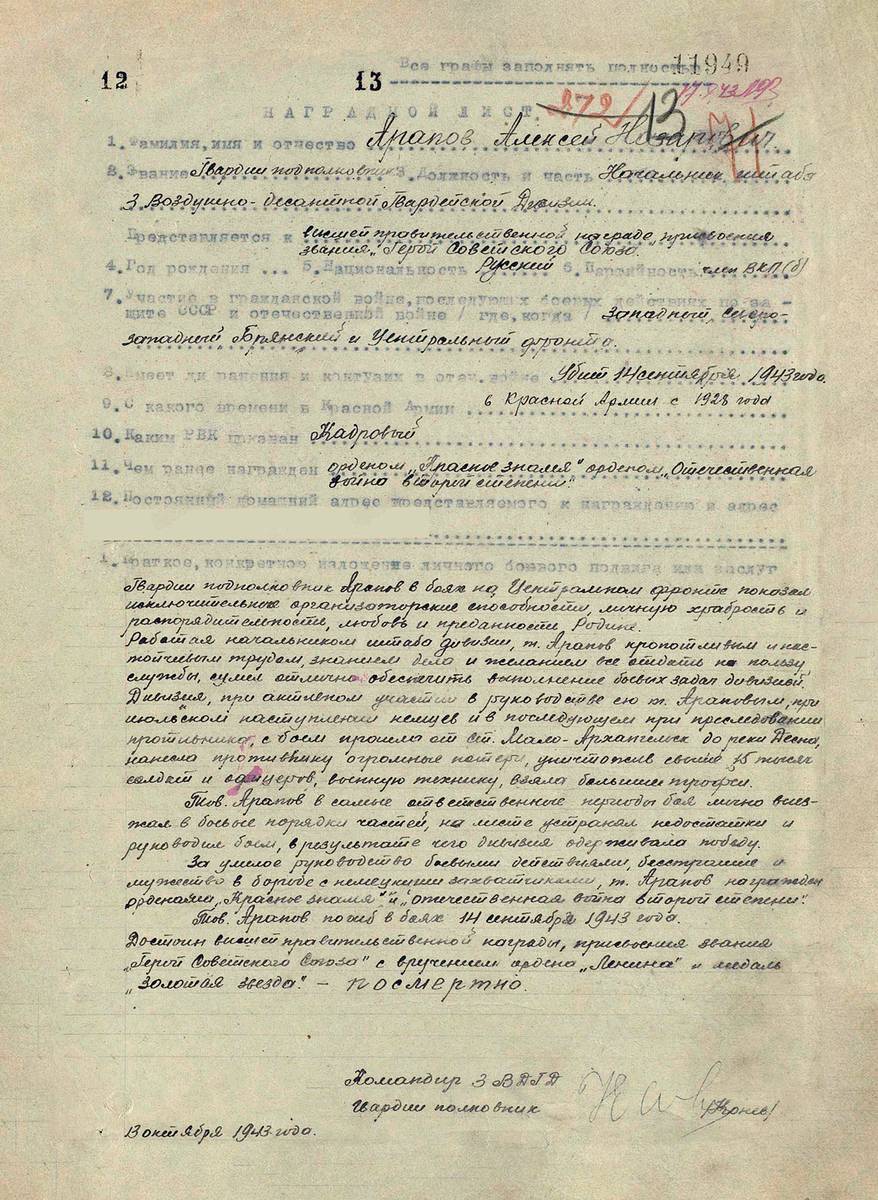 Все графы заполнять полностью
11949
12
13
НАГРАДНОЙ ЛИСТ
272/
13
71
1. Фамилия, имя и отчество Арапов Алексей Назарович
2. Звание Гвардии подполковник 3. Должность и часть Начальник штаба
3 Воздушно-десантной Гвардейской Дивизии.
Представляется к высшей правительственной награде, присвоения
звания „Герой Советского Союза."
4. Год рождения ... 5. Национальность Русский 6. Партийность член ВКП(б)
7. Участие в гражданской войне, последующих боевых действиях по за-
щите СССР и отечественной войне / где, когда / Западный, Северо-
западный, Брянский и Центральный фронта.
8. Имеет ли ранения и контузии в отеч. войне Убит 14 сентября 1943 года.
9. С какого времени в Красной Армии в Красной Армии с 1928 года
10. Каким РВК призван Кадровый
11. Чем ранее награжден орденом „Красное знамя" орденом „Отечественная
война второй степени".
12. Постоянный домашний адрес представляемого к награждению и адрес
1. Краткое, конкретное изложение личного боевого подвига или заслуг
Гвардии подполковник Арапов в боях на Центральном фронте показал
исключительные организаторские способности, личную храбрость и
распорядительность, любовь и преданность Родине.
Работая начальником штаба дивизии, т. Арапов кропотливым и нас-
тойчивым трудом, знанием дела и желанием все отдать на пользу
службы, сумел отлично обеспечить выполнение боевых задач дивизией.
Дивизия, при активном участии в руководстве ею т. Араповым, при
июльском наступлении немцев и в последующем при преследовании
противника, с боем прошла от ст. Мало-Архангельск до реки Десна,
нанесла противнику огромные потери, уничтожив свыше 15 тысяч
солдат и офицеров, военную технику, взяла большие трофеи.
Тов. Арапов в самые ответственные периоды боя лично выез-
жал в боевые порядки частей, на месте устранял недостатки и
руководил боем, в результате чего дивизия одерживала победу.
За умелое руководство боевыми действиями, бесстрашие и
мужество в борьбе с немецкими захватчиками, т. Арапов награжден
орденами „Красное знамя" и „отечественная война второй степени".
Тов. Арапов погиб в боях 14 сентября 1943 года.
Достоин высшей правительственной награды, присвоения звания
„Герой Советского Союза" с вручением ордена „Ленина" и медаль
„Золотая звезда." – посмертно.
Командир 3 ВДГД
Гвардии полковник /Конев/
13 октября 1943 года.